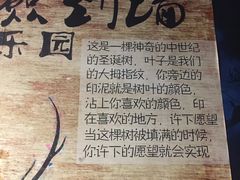 到墙
乐园
这是一棵神奇的中世纪
的圣诞树，叶子是我们
的大拇指纹，你旁边的
印泥就是树叶的颜色，
沾上你喜欢的颜色，印
在喜欢的地方，许下愿望
当这棵树被填满的时候，
你许下的愿望就会实现